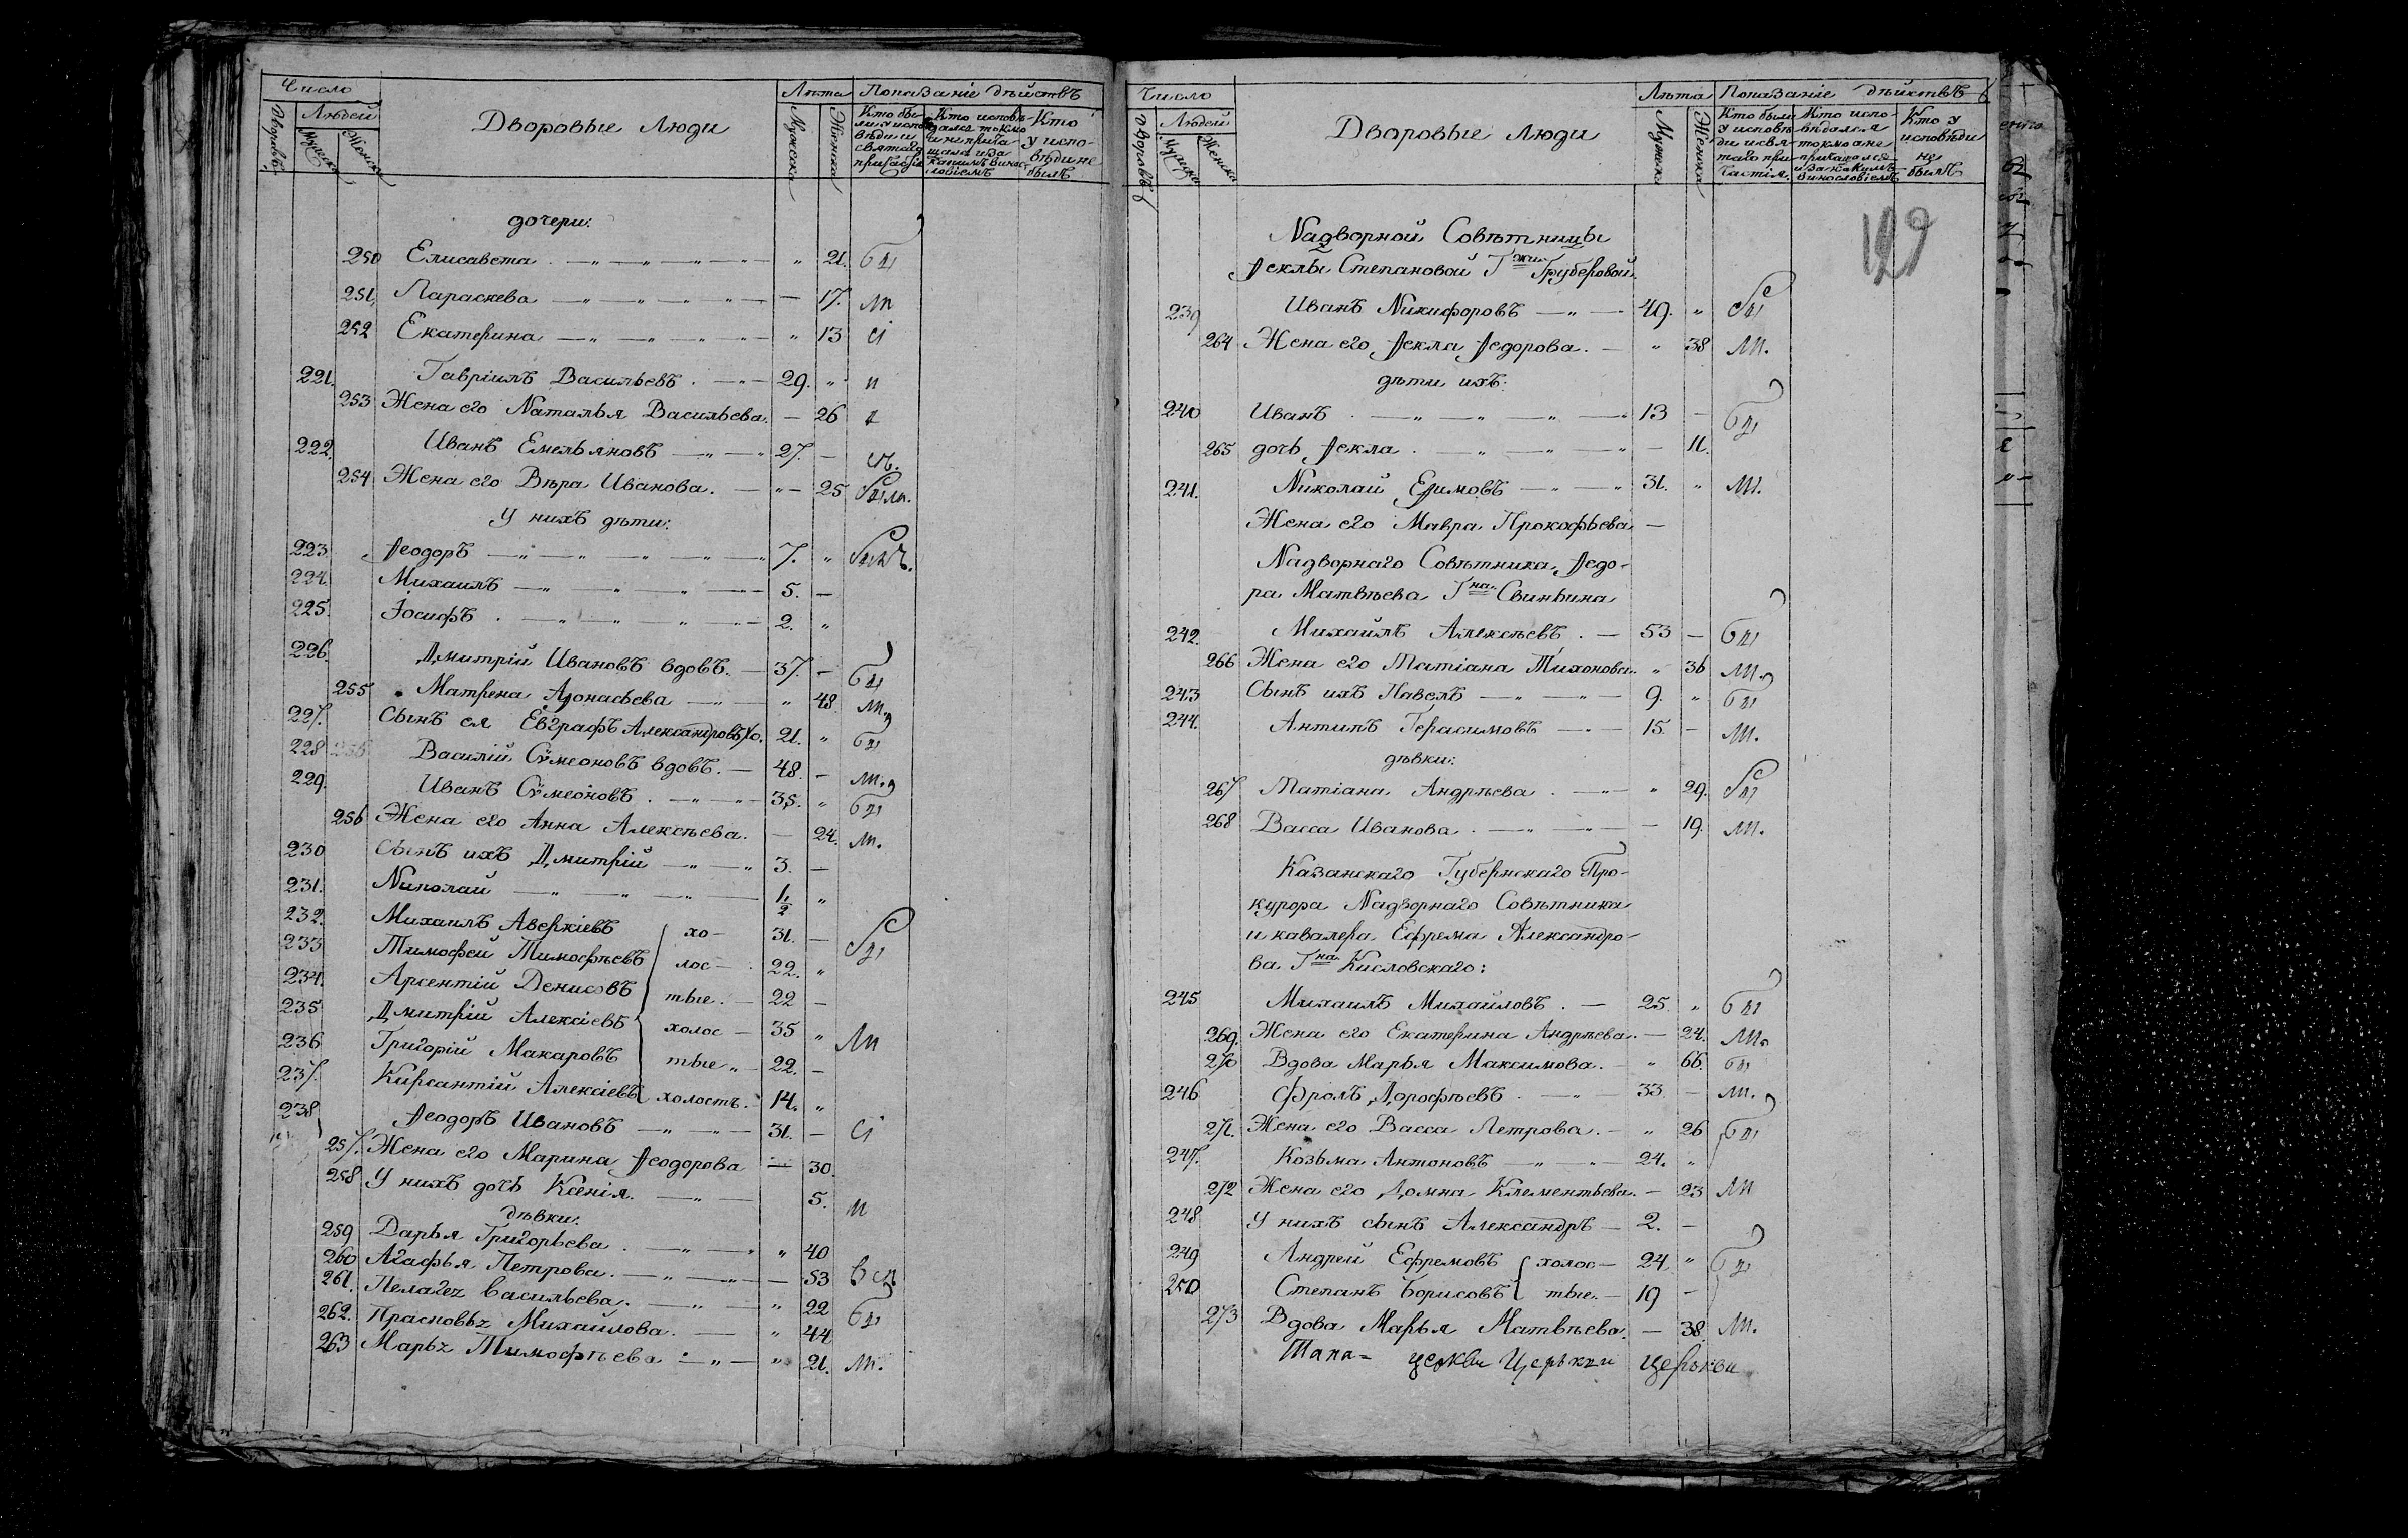 Число
Лѣта Показаніе дѣйствъ
Дворовъ
Людей
Мужска
Женска
Дворовые Люди
Мужска
Женска
Кто бы-
ли у испо-
вѣди и
святаго
причастія
Кто исповѣ-
дался токмо
и не прича-
щался и за
какимъ винос-
ловіемъ
Кто
у испо-
вѣди не
былъ
дочери:
250 Елисавета 21. бы
251, Параскева 17. ли
252 Екатерина 13
221. Гавріилъ Васильевъ 29. и
253 Жена его Наталья Васильева. 26
222. Иванъ Емельяновъ 27.
254 Жена его Вѣра Иванова. 25 были.
У нихъ дѣти:
223. Ѳеодоръ 7.
224. Михаилъ 5.
225. Іосифъ 2.
226. Дмитрій Ивановъ вдовъ. 37. бы
255 Матрена Аѳонасьева 48. ли.
227. Сынъ ея Евграфъ Александровъ хо. 21. бы
228 Василій Сѵмеоновъ вдовъ. 48. ли.
229. Иванъ Сѵмеоновъ 35. бы
256 Жена его Анна Алексѣева. 24. ли.
230 Сынъ ихъ Дмитрій 3.
231. Николай 1/2
232. Михаилъ Аверкіевъ хо- 31. бы
233 Тимофей Тимофѣевъ лос- 22.
234. Арсентій Денисовъ тые. 22
235 Дмитрій Алексіевъ холос 35 ли
236 Григорій Макаровъ тые 22.
237. Кирсантій Алексіевъ холостъ. 14.
238 Ѳеодоръ Ивановъ 31.
257. Жена его Марина Ѳеодорова 30.
258 У нихъ дочь Ксенія. 5. и
дѣвки:
259 Дарья Григорьева 40
260 Агафья Петрова. 53 всѣ
261. Пелагея Васильева. 22 бы
262. Прасковья Михайлова. 44
263 Марья Тимофѣева 21. ли.
Число
Лѣта Показаніе дѣйствъ
Дворовъ
Людей
Мужска
Женска
Дворовые Люди
Мужска
Женска
Кто были
у исповѣ-
ди и свя-
таго при-
частія.
Кто испо-
вѣдался
токмо а не
причащался
и за какимъ
винословіемъ
Кто у
исповѣди
не
былъ
129
Надворной Совѣтницы
Ѳеклы Степановой Гжи Груберовой.
239 Иванъ Никифоровъ 49. бы
264 Жена его Ѳекла Ѳедорова. 38 ли.
дѣти ихъ:
240 Иванъ 13 бы
265 дочь Ѳекла 11.
241. Николай Еѳимовъ 31. ли.
Жена его Мавра Прокофьева
Надворнаго Совѣтника Ѳедо-
ра Матвѣева Гна Свиньина
242. Михаилъ Алексѣевъ 53 бы
266 Жена его Татіана Тихонова. 36 ли.
243 Сынъ ихъ Павелъ 9. бы
244. Антипъ Герасимовъ 15. ли.
дѣвки:
267 Татіана Андрѣева 29. бы
268 Васса Иванова 19. ли.
Казанскаго Губернскаго Про-
курора Надворнаго Совѣтника
и кавалера Ефрема Александро-
ва Гна Кисловскаго:
245 Михаилъ Михайловъ 25. бы
269. Жена его Екатерина Андрѣева. 24. ли.
270 Вдова Марья Максимова. 66. бы
246 Фролъ Дорофѣевъ 33. ли.
271. Жена его Васса Петрова. 26 бы
247. Козьма Антоновъ 24.
272 Жена его Домна Клементьева. 23 ли
248 У нихъ сынъ Александръ 2.
249 Андрей Ефремовъ холос- 24. бы
250 Степанъ Борисовъ тые. 19
273 Вдова Марья Матвѣева. 38. ли.
церкви Церькви церькви